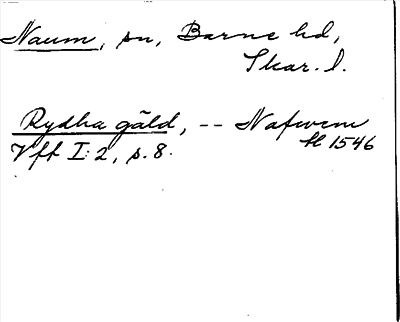 Naum, sn, Barne hd,
Skar. l.
Rydha gäld, -- Nafwem
H 1546
Vff I:2, s. 8.